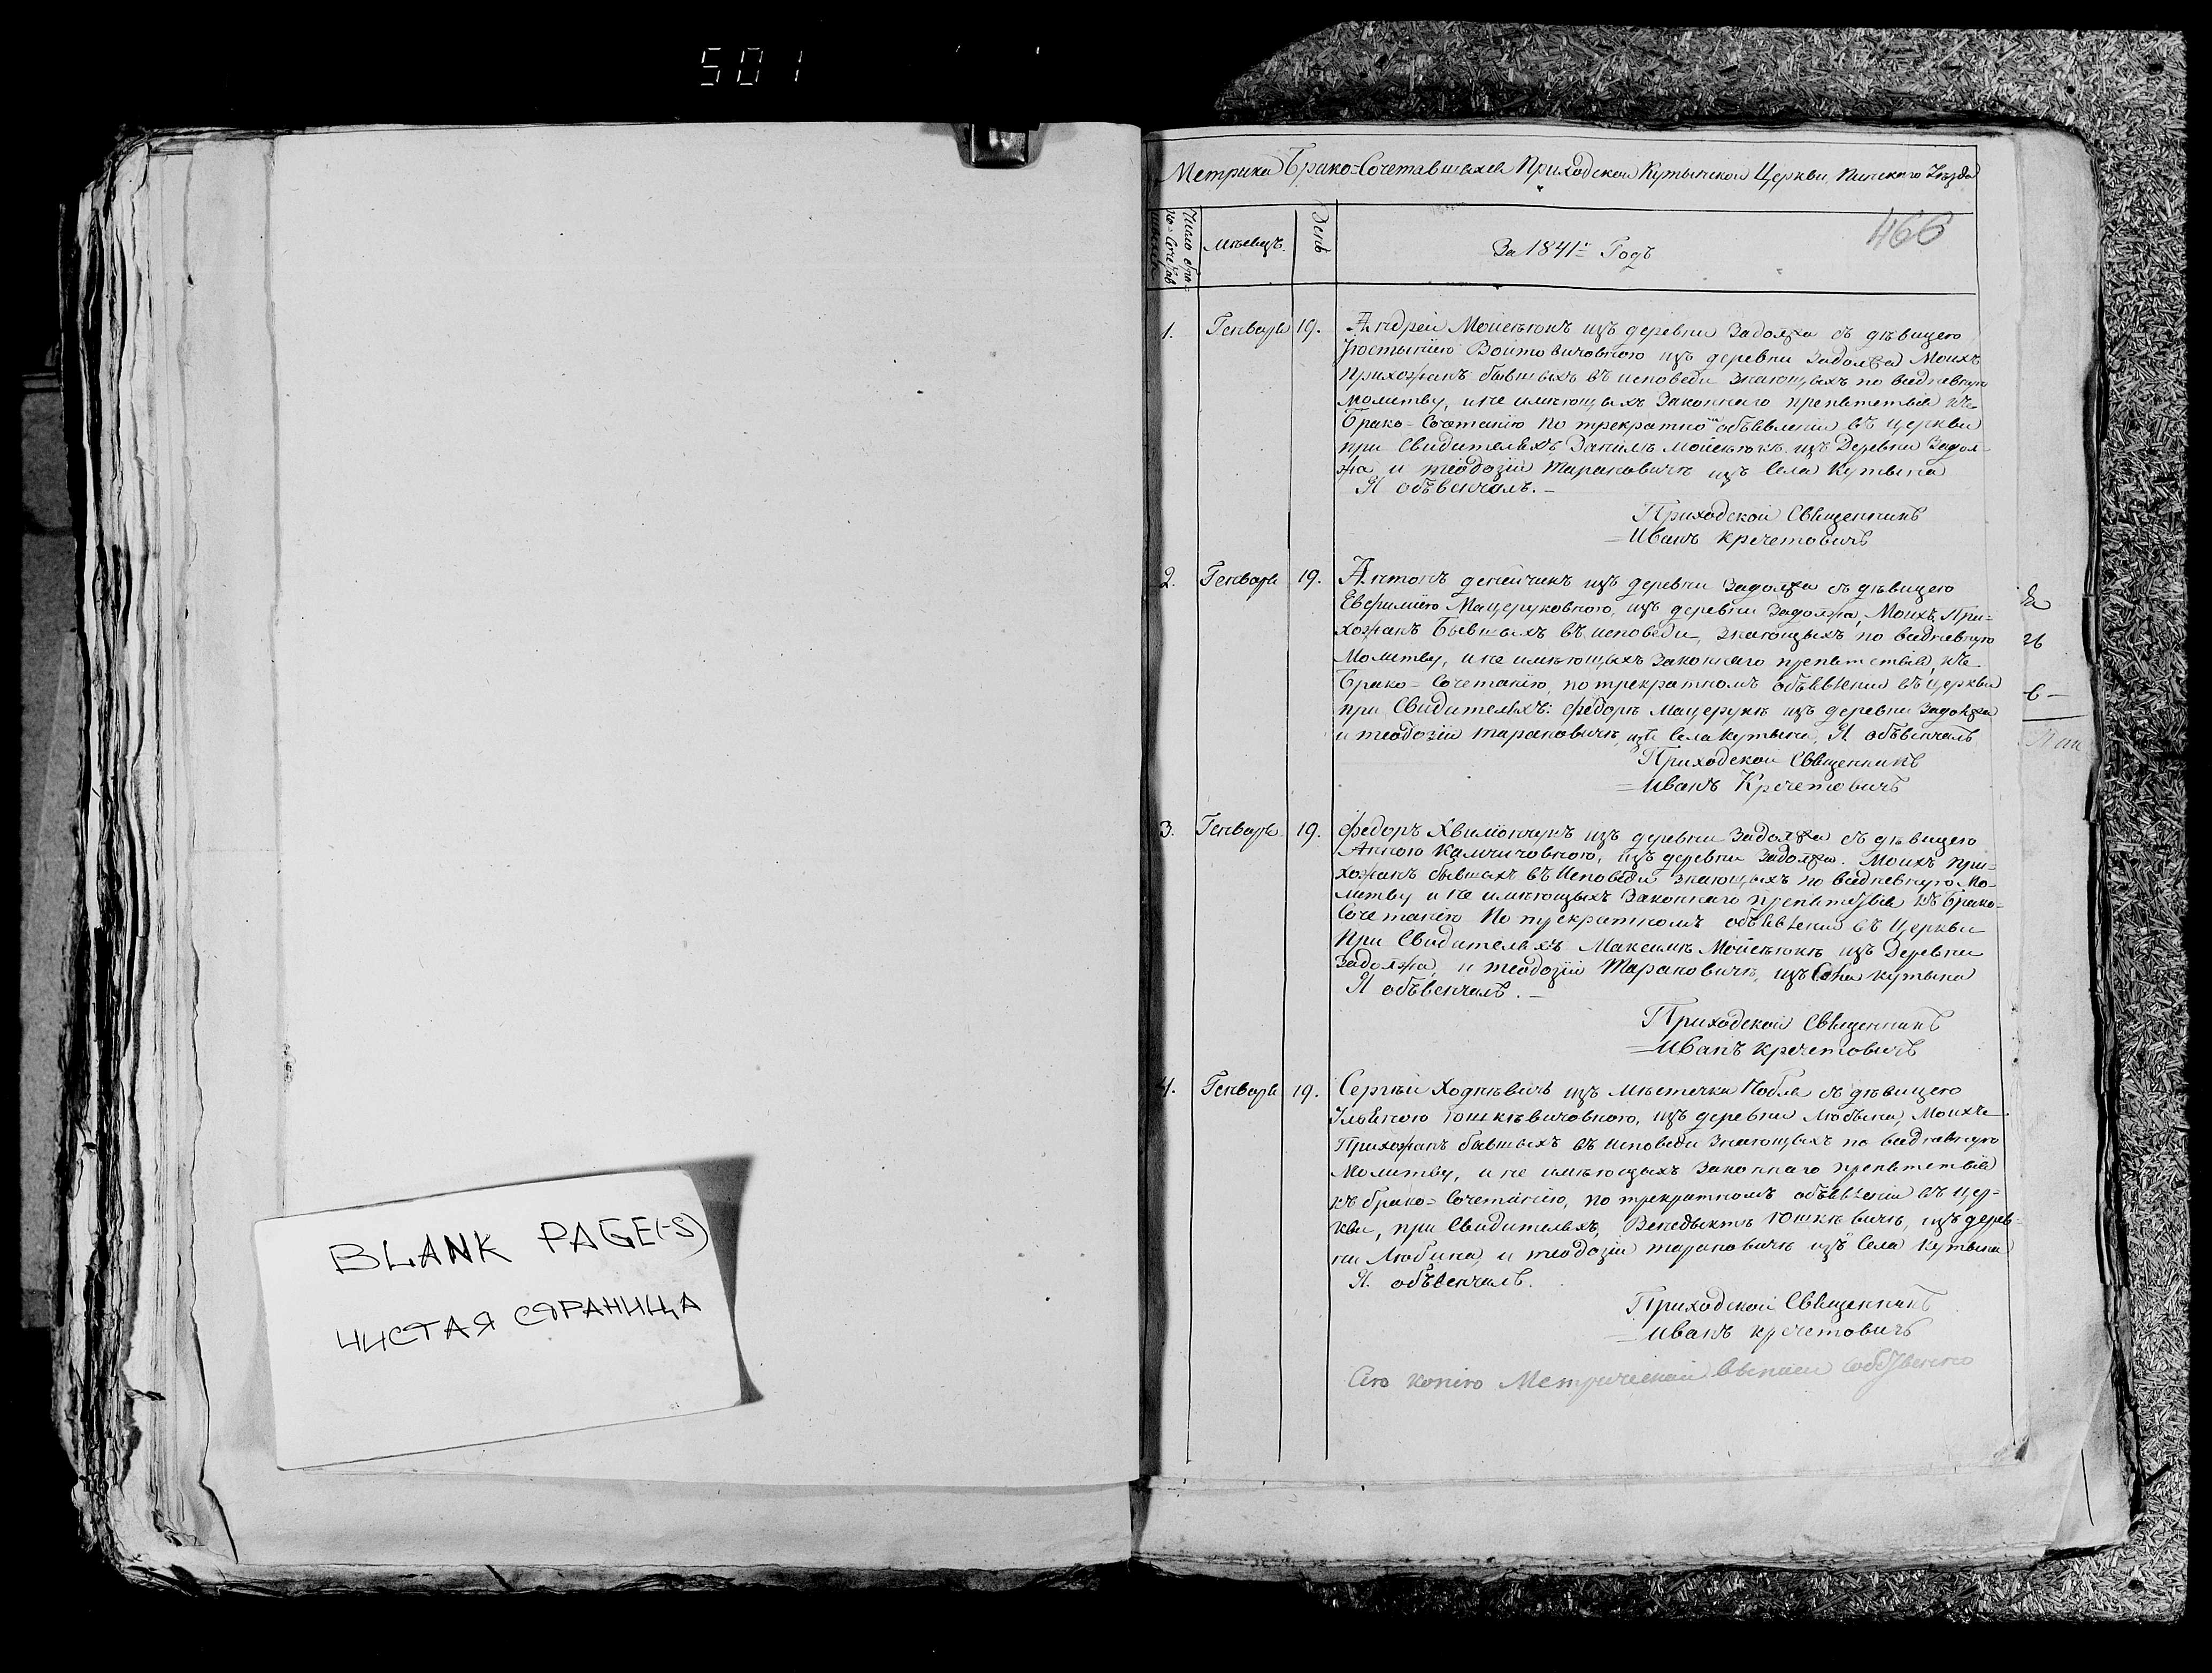 501
BLANK PAGE(-S)
ЧИСТАЯ СТРАНИЦА
Метрика Брако=Сочетавшихся Приходской Кутынской Церкви, Пинского Уѣзда
466
Число бра=
ко=Сочетав
шихся
Мѣсяцъ.
День
За 1841й Годъ
1. Генваря 19. Андрей Мойсѣюкъ изъ деревни Задолжа съ дѣвицею
Юстыніею Войтовичовною изъ деревни Задолжа Моихъ
Прихожанъ бывшыхъ въ исповеди знающыхъ по вседневную
молитву, и не имѣющыхъ Законнаго препятствія къ
Брако-Сочетанію По трекратномъ объявленіи въ церкви
при Свидителяхъ Данилѣ Мойсѣюкѣ изъ Деревни Задол-
жа и теодозіи Тарановичѣ изъ Села Кутына
Я объвенчалъ.—
Приходской Священникъ
Иванъ Кречетовичъ
2. Генваря 19. Антонъ денейчикъ изъ деревни Задолжа съ дѣвицею
Евфиміею Мацеруковною, изъ деревни Задолжа, Моихъ При=
хожанъ Бывшыхъ въ исповеди, знающыхъ по вседневную
Молитву, и не имѣющыхъ Законнаго препятствія, къ
Брако=Сочетанію, по трекратномъ объявленіи въ церкви
при Свидителяхъ: Федорѣ Мацерукѣ изъ деревни Задолжа
и теодозіи тарановичѣ, изъ Села Кутына, Я объвенчалъ
Приходской Священникъ
Иванъ Кречетовичъ
3. Генваря 19. Федоръ Хвимончукъ изъ деревни Задолжа съ дѣвицею
Анною изъ деревни Задолжа. Моихъ при=
хожанъ бывшыхъ въ Исповеди знающыхъ по вседневную Мо-
литву и не имѣющыхъ Законнаго препятствія къ Брако=
Сочетанію По трекратномъ объявленіи въ Церкви
При Свидителяхъ Максимѣ Мойсѣюкѣ изъ Деревни
Задолжа, и теодозіи Тарановичѣ, изъ Села Кутына
Я объвенчалъ.—
Приходской Священникъ
Иванъ Кречетовичъ
4. Генваря 19. Сергѣй Ходнѣвичъ изъ Мѣстечка Нобля съ дѣвицею
Юшкѣвичовною, изъ деревни Любыня, Моихъ
Прихожанъ бывшыхъ въ исповеди Знающыхъ по вседневную
Молитву, и не имѣющыхъ Законнаго препятствія
къ брако=Сочетанію, по трекратномъ объявленіи въ цер=
кви, при Свидителяхъ, Венедыктѣ Юшкѣвичѣ, изъ дерев-
ни Любиня, и теодозіи тарановичѣ изъ Села Кутына
Я. объвенчалъ.
Приходской Священникъ
Иванъ Кречетовичъ
Сію копію Метрической выписи собственно